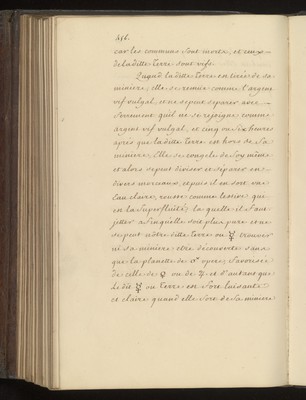 416.
car les communs sont morts, et ceux
de laditte terre sont vifs.
Quand laditte terre est tirée de sa
miniere, elle se remüe comme l'argent
vif vulgal, et ne se peut separer avec
ferrement qu'il ne se rejoigne comme
argent vif vulgal, et cinq ou six heures
après que laditte terre est hors de sa
miniere, Elle se congele de soy même
et alors se peut diviser et separer en
divers morceaux, et puis il en sort une
Eau claire, rousse comme lessive que
est la superfluité, la quelle il faut
jetter a fin qu'elle soit plus pure et ne
se peut nôtre ditte terre ou ☿ trouver
ni sa miniere etre découverte sans
que la planette de ♂ opere, favorisée
de celle de ♀ ou de ♃. et d'autant que
le dit ☿ ou terre est fort luisante
et claire quand elle sort de sa miniere